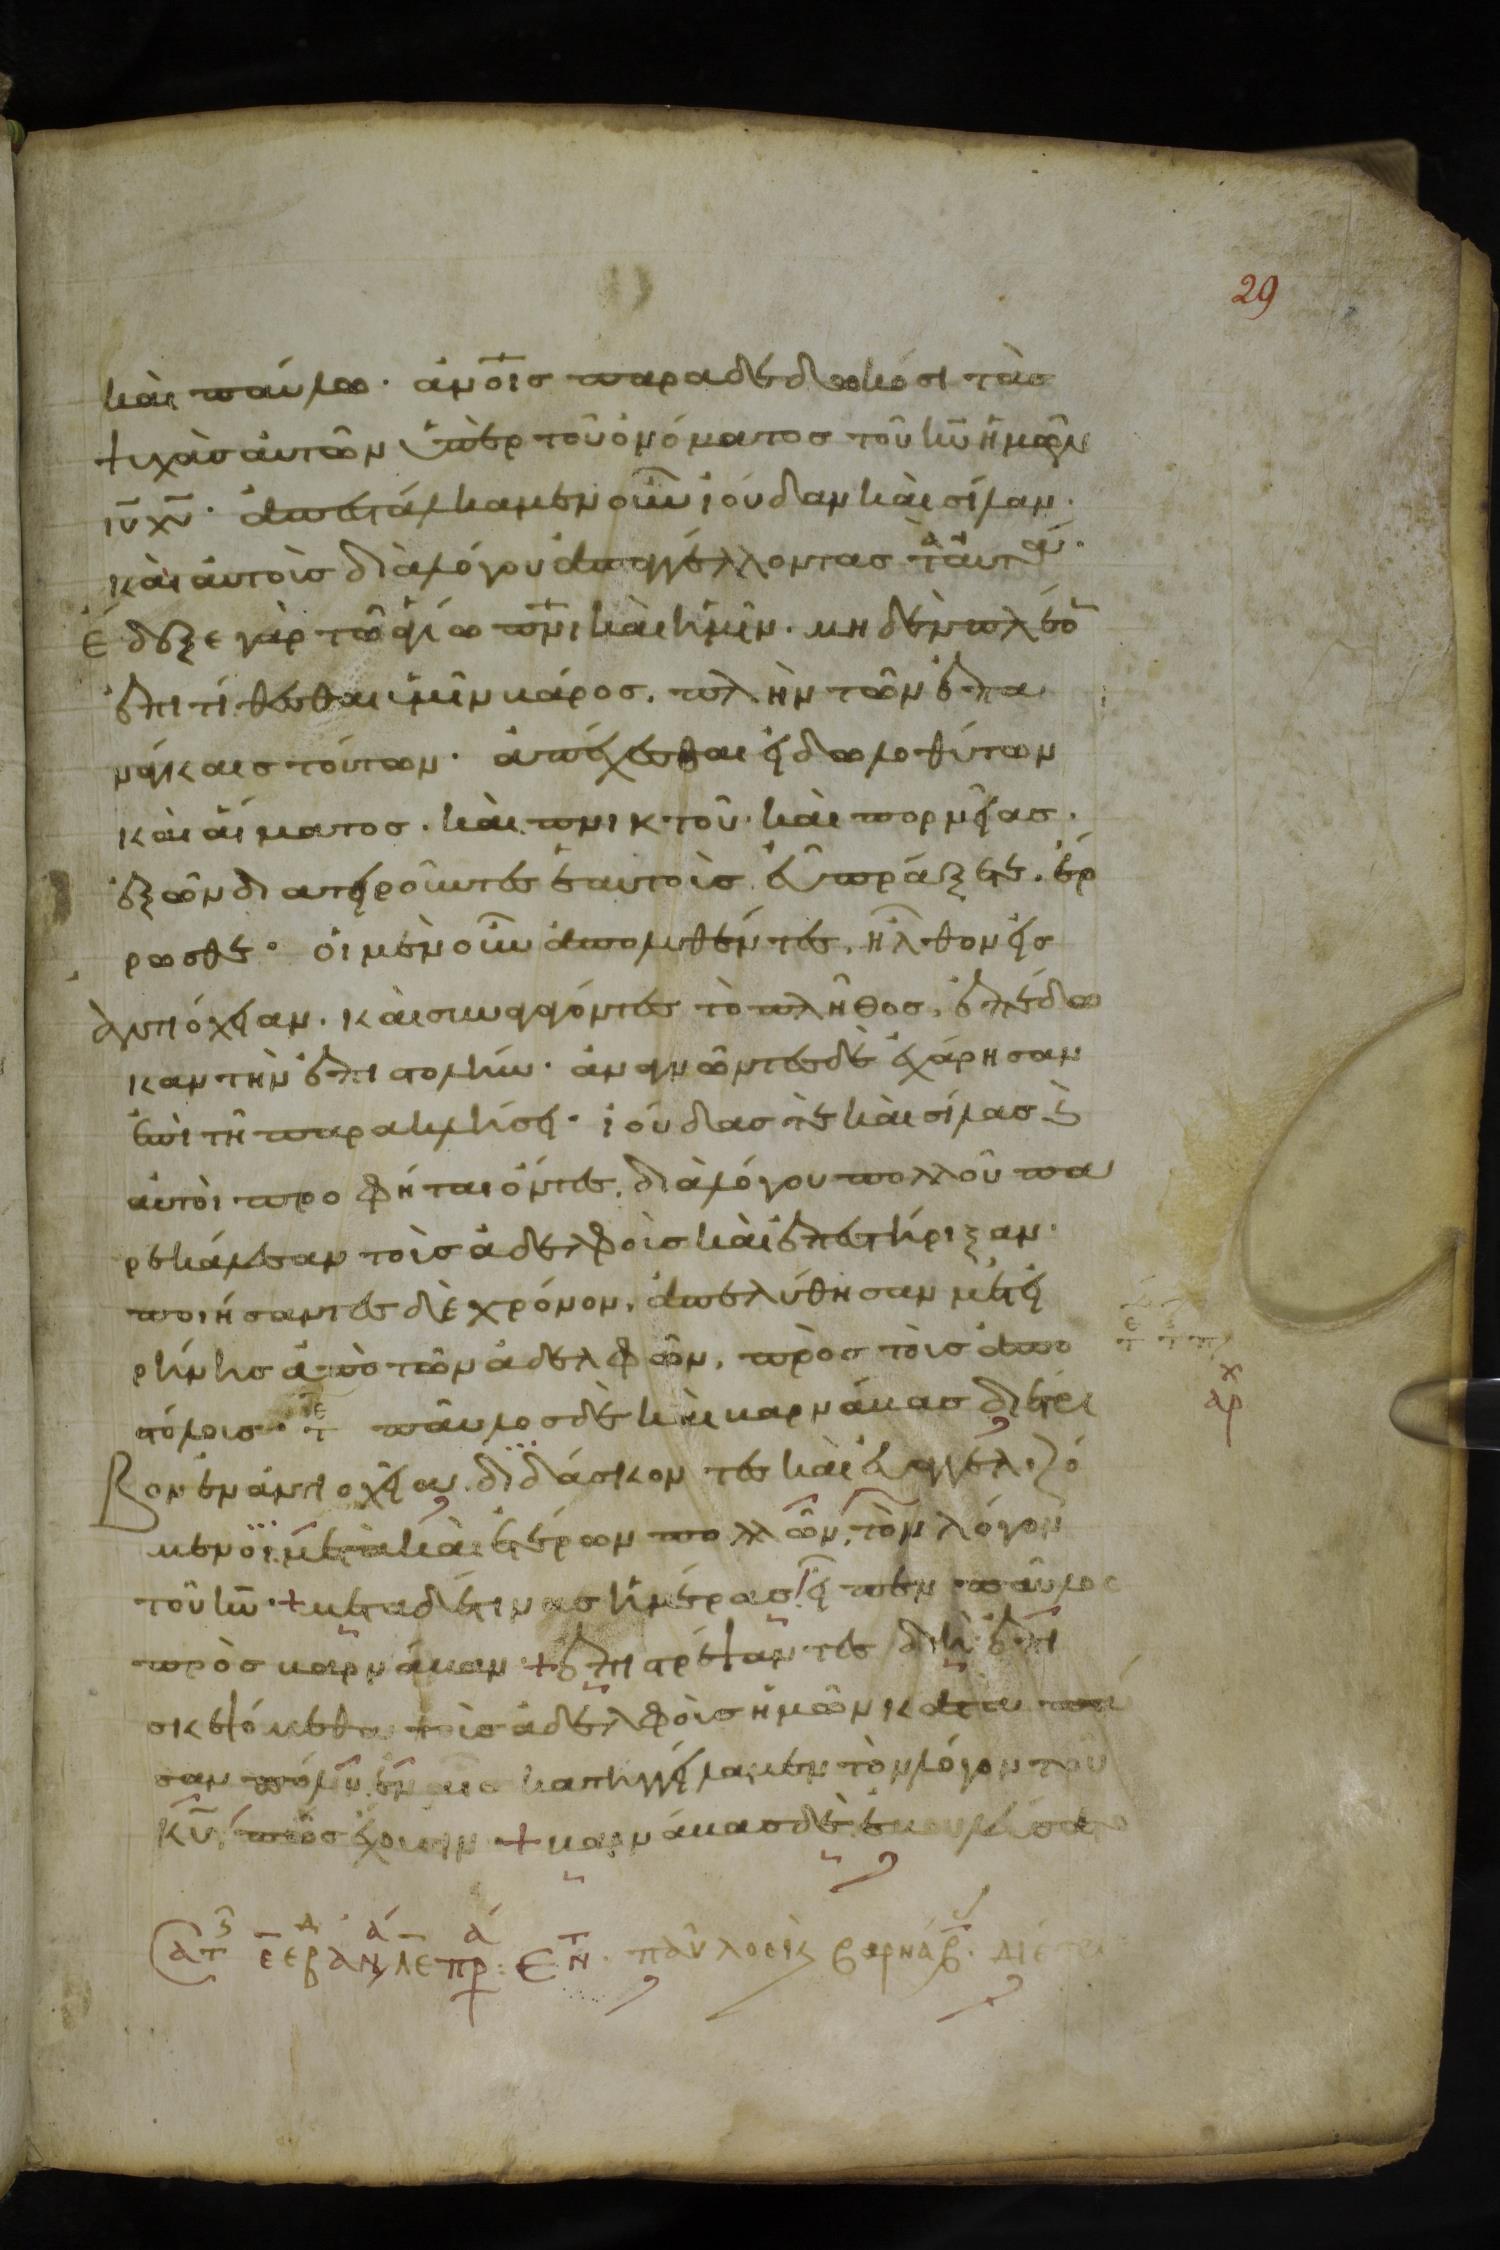 29
καὶ παύλω· ἀν̅οις παραδεδωκόσι τὰς
ψυχὰς αὐτῶν ὑπὲρ τοῦ ὀνόματος τοῦ κυ̅ ἡμῶν
ιυ̅ χυ̅· ἀπεστάλκαμεν οὖν ἰούδαν καὶ σίλαν·
καὶ αὐτοὶς διὰ λόγου ἀπαγγέλλοντας τὰ αὐτά·
ἔδοξε γὰρ τῶ ἁγίω πν̅ι καὶ ἡμῖν· μηδὲν πλέο̅
ἐπιτίθεσθαι ὑμῖν βάρος, πλὴν τῶν ἐπα
νάγκαις τούτων· ἀπέχεσθαι εἰδωλοθύτων
καὶ αἵματος· καὶ πνικτοῦ· καὶ πορνείας·
ἐξ ὧν διατηροῦντες ἑαυτοὶς εὖ πράξετε· ἔρ
ρωσθε· οἱ μὲν οὖν ἀπολυθέντες, ἦλθον εἰς
ἀντιόχειαν· καὶ συναγαγόντες τὸ πλῆθος, ἐπέδω
καν τὴν ἐπιστολήν· ἀναγνῶντες δὲ ἐχάρησαν
ἐπὶ τῆ παρακλήσει· ἰούδας τὲ καὶ σίλας ϗ
αὐτοὶ προφῆται ὄντες, διὰ λόγου πολλοῦ πα
ρεκάλεσαν τοὶς ἀδελφοὶς καὶ ἐπεστήριξαν·
ποιήσαντες δὲ χρόνον, ἀπελύθησαν μετ εἰ
ρήνης ἀπὸ τῶν ἀδελφῶν, πρὸς τοὶς ἀπο
στόλοις· τε παῦλος δὲ καὶ βαρνάβας διέτρι
βον ἐν ἀντιοχεία. διδάσκοντες καὶ εὐαγγελιζό
μενοι μετὰ καὶ ἑτέρων πολλῶν, τὸν λόγον
τοῦ κυ̅· + μετὰ δέ τινας ἡμέρας, εἶπεν παῦλος
πρὸς βαρνάβαν + ἐπιστρέψαντες δὴ ἐπι
σκεψόμεθα τοὶς ἀδελφοὶς ἡμῶν κατὰ πᾶ
σαν πόλιν ἐν αἷς κατηγγείλαμεν τὸν λόγον τοῦ
κυ̅, πῶς ἔχουσιν + βαρνάβας δὲ ἐβουλεύσατο
αρχ
παῦλος ϗ βαρνάβ· διέτρι